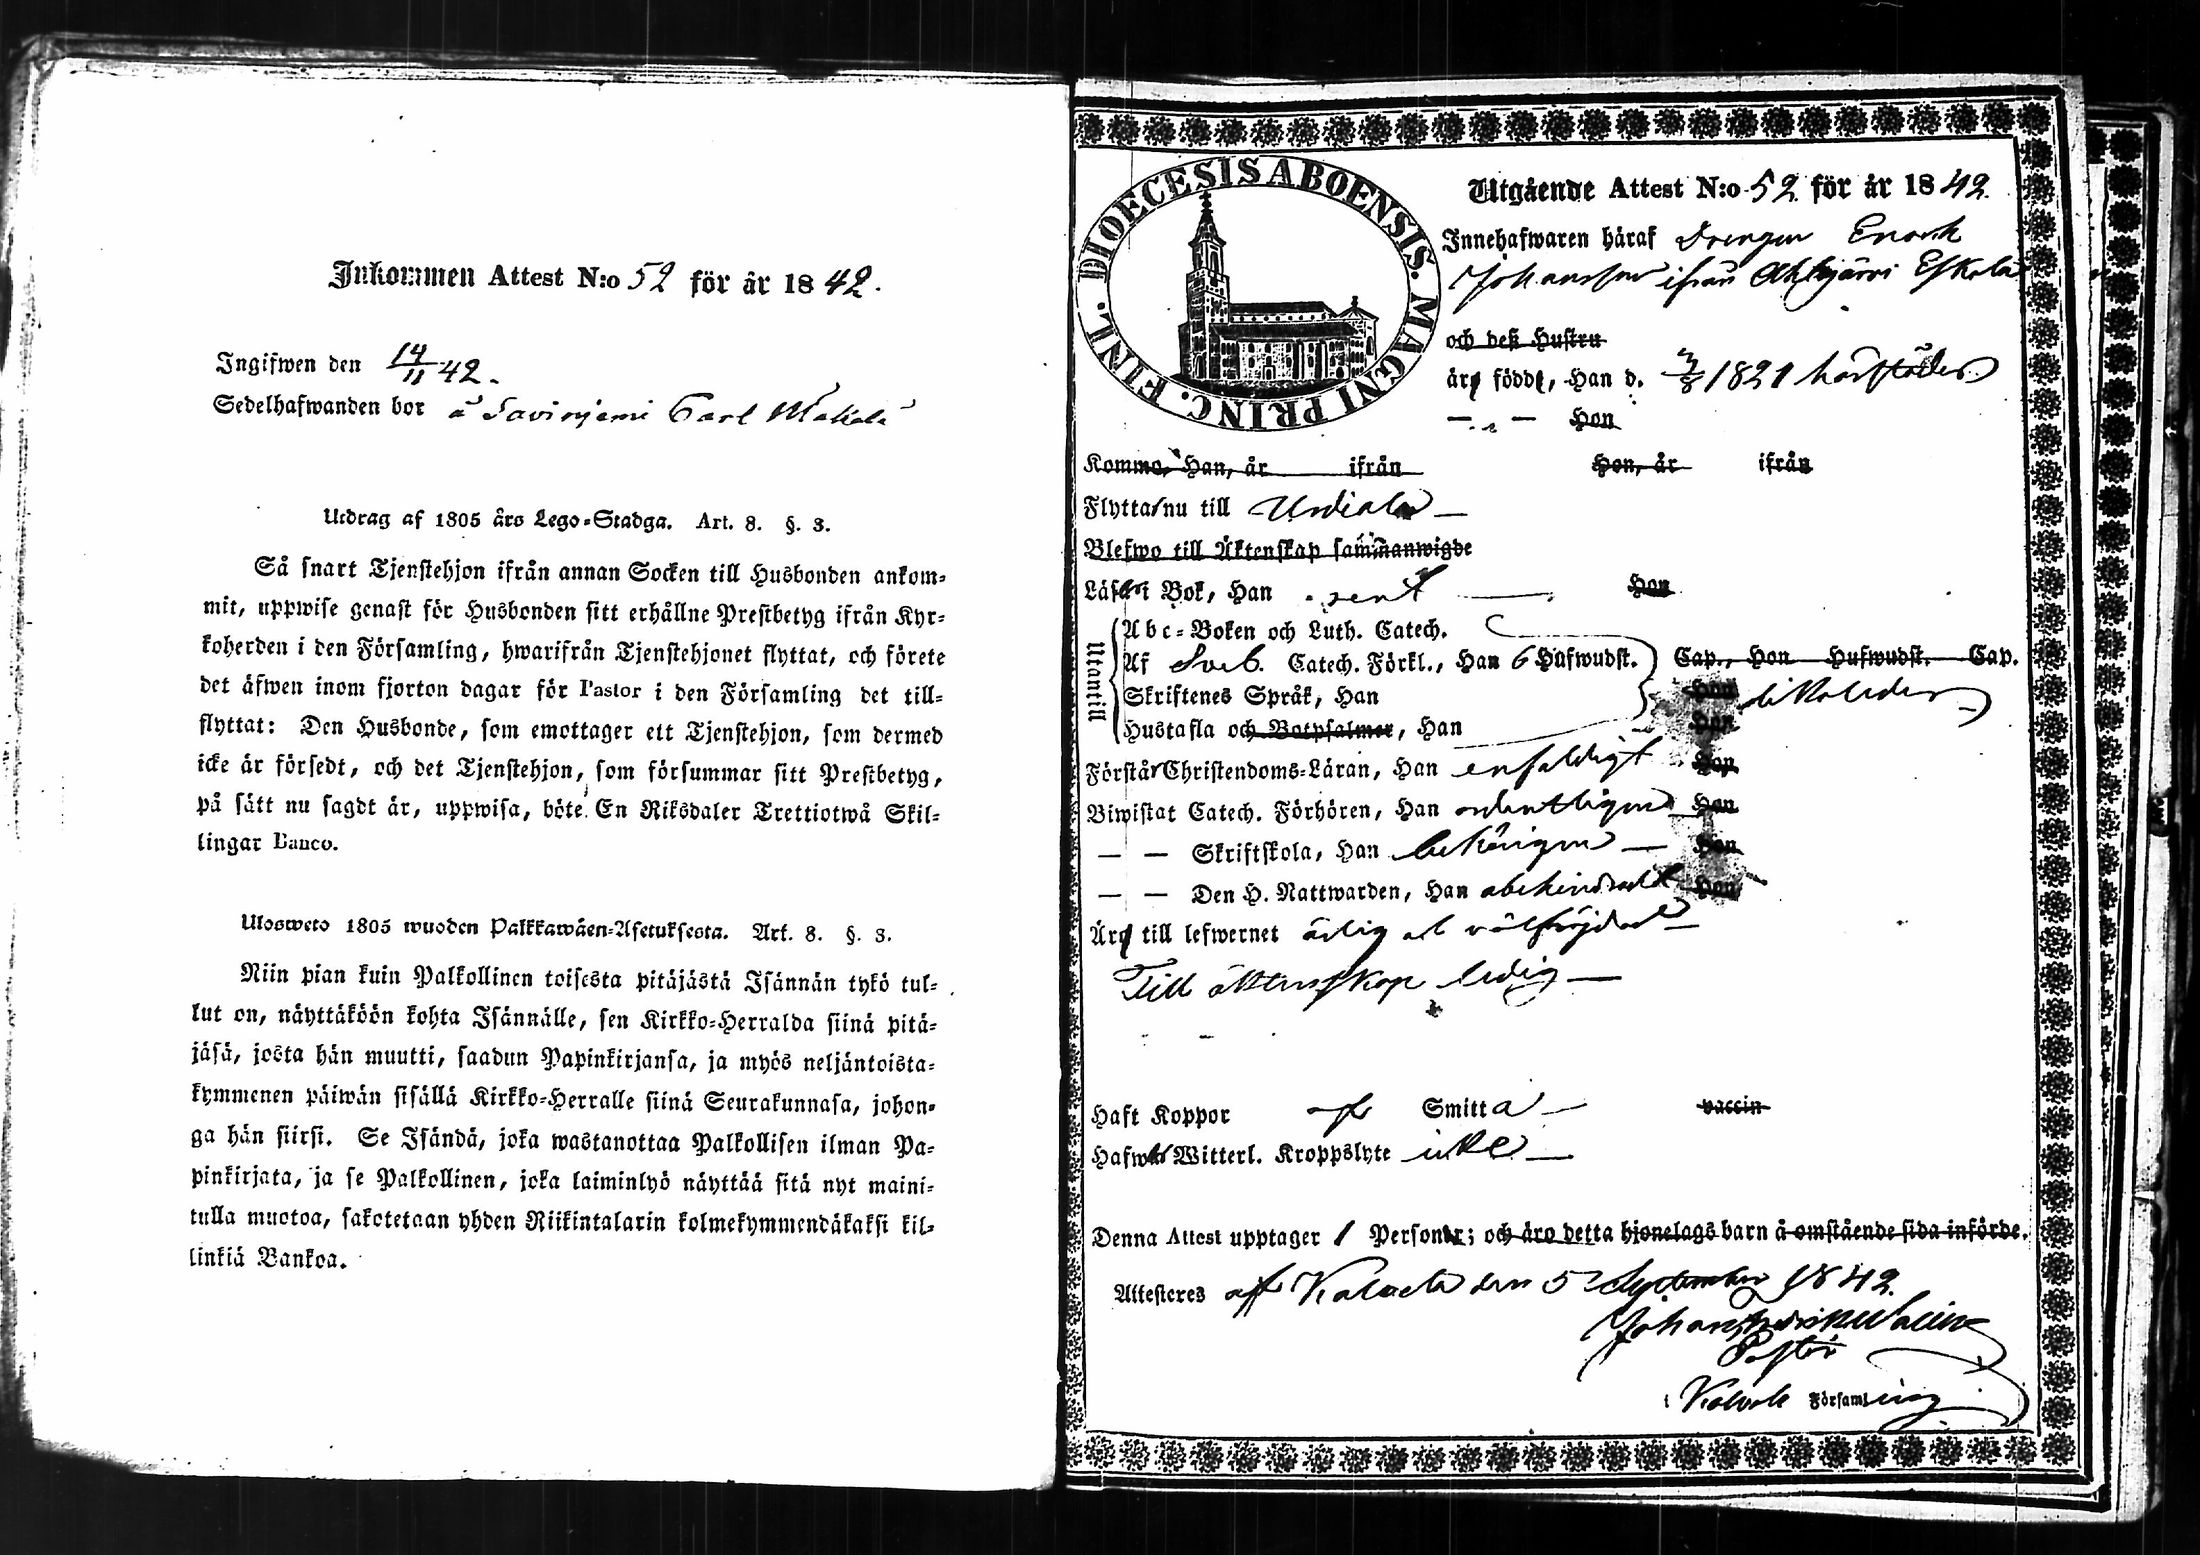 Inkommen Attest N:o 52 för år 1842.
Ingifwen den 14/11 42.
Sedelhafwanden bor å Savinjemi Carl Mäkelä
Utdrag af 1805 års Lego-Stadga. Art. 8. §. 3.
Så snart Tjenstehjon ifrån annan Socken till Husbonden ankom-
mit, uppwise genast för Husbonden sitt erhållne Prestbetyg ifrån Kyr-
koherden i den Församling, hwarifrån Tjenstehjonet flyttat, och förete
det äfwen inom fjorton dagar för Pastor i den Församling det till-
flyttat: Den Husbonde, som emottager ett Tjenstehjon, som dermed
icke är försedt, och det Tjenstehjon, som försummar sitt Prestbetyg,
på sätt nu sagdt är, uppwisa, böte En Riksdaler Trettiotwå Skil-
lingar Banco.
Ulosweto 1805 wuoden Palkkawäen-Asetuksesta. Art. 8. §. 3.
Niin pian kuin Palkollinen toisesta pitäjästä Isännän tykö tul-
lut on, näyttäköön kohta Isännälle, sen Kirkko-Herralda siinä pitä-
jäsä, josta hän muutti, saadun Papinkirjansa, ja myös neljäntoista-
kymmenen päiwän sisällä Kirkko-Herralle siinä Seurakunnasa, johon-
ga hän siirsi. Se Isändä, joka wastanottaa Palkollisen ilman Pa-
pinkirjata, ja se Palkollinen, joka laiminlyö näyttää sitä nyt maini-
tulla muotoa, sakotetaan yhden Riikintalarin kolmekymmendäkaksi kil-
linkiä Bankoa.
DIOECESIS ABOENSIS. MAGNI PRINC. FINL.
Utgående Attest N:o 52 för år 1842.
Innehafwaren häraf Drengen Enoch
Johansson ifrån Ahlajärvi Eskola
och deß Hustru
äro födde, Han d. 1821 härstädes
— " — Hon
Kommo, Han, år ifrån Hon, år ifrån
Flytta nu till Urdiala —
Blefwo till Äktenskap sammanwigde
Läser i Bok, Han rent — Hon
Utantill
Abc-Boken och Luth. Catech.
Af Sveb. Catech. Förkl., Han 6 Hufwudst. Cap., Hon Hufwudst. Cap.
Skriftenes Språk, Han Hon likaledes
Hustafla och Botpsalmer, Han Hon
Förstår Christendoms-Läran, Han enfaldigt Hon
Biwistat Catech. Förhören, Han ordentligen Hon
— — Skriftskola, Han behörigen — Hon
— — Den H. Nattwarden, Han obehindrad Hon
Äro till lefwernet ärlig och välfrejdad —
Till äktenskap ledig —
Haft Koppor af Smitta — vaccin
Hafwa Witterl. Kroppslyte icke —
Denna Attest upptager 1 Personer; och äro detta hjonelags barn å omstående sida införde.
Attesteres af Kalvola den 5 September 1842.
Johan
Pastor
i Kalvola Församling